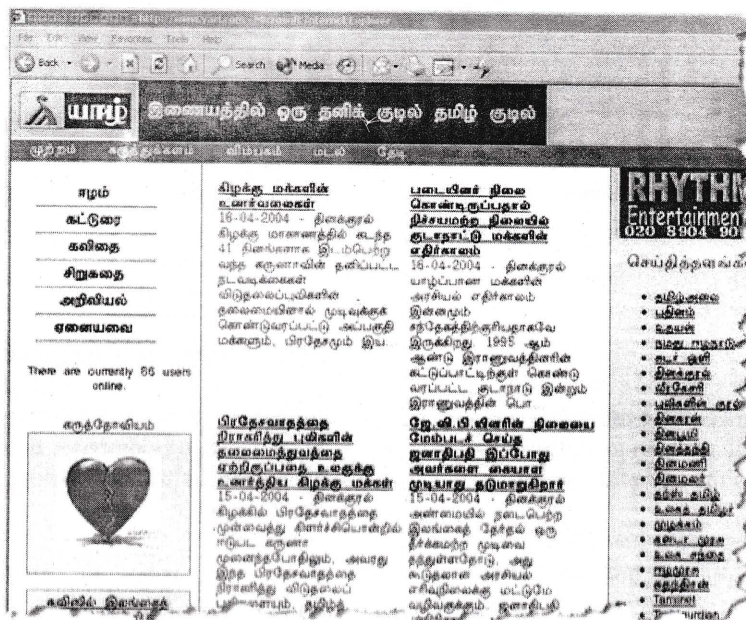 http://www.yarl.com - Microsoft Internet Explorer
File Edit View Favorites Tools Help
Back Search Media
யாழ் இணையத்தில் ஒரு தனிக் குடில் தமிழ் குடில்
முற்றம் கருத்துக்களம் விம்பகம் மடல் தேடி
ஈழம்
கட்டுரை
கவிதை
சிறுகதை
அறிவியல்
ஏனையவை
There are currently 86 users
online.
கருத்தோவியம்
கவினில் இலங்கைத்
கிழக்கு மக்களின்
உணர்வலைகள்
16-04-2004 - தினக்குரல்
கிழக்கு மாகாணத்தில் கடந்த
41 தினங்களாக இடம்பெற்று
வந்த கருணாவின் தனிப்பட்ட
நடவடிக்கைகள்
விடுதலைப்புலிகளின்
தலைமையினால் முடிவுக்குக்
கொண்டுவரப்பட்டு அப்பகுதி
மக்களும், பிரதேசமும் இய...
பிரதேசவாதத்தை
நிராகரித்து புலிகளின்
தலைமைத்துவத்தை
ஏற்றிருப்பதை உலகுக்கு
உணர்த்திய கிழக்கு மக்கள்
15-04-2004 - தினக்குரல்
கிழக்கில் பிரதேசவாதத்தை
முன்வைத்து கிளர்ச்சியொன்றில்
ஈடுபட கருணா
முனைந்தபோதிலும், அவரது
இந்த பிரதேசவாதத்தை
நிராகரித்து விடுதலைப்
புலிகளையும், தமிழ்த்
படையினர் நிலை
கொண்டிருப்பதால்
நிச்சயமற்ற நிலையில்
குடாநாட்டு மக்களின்
எதிர்காலம்
16-04-2004 - தினக்குரல்
யாழ்ப்பாண மக்களின்
அரசியல் எதிர்காலம்
இன்னமும்
சந்தேகத்திற்குரியதாகவே
இருக்கிறது. 1995 ஆம்
ஆண்டு இராணுவத்தினரின்
கட்டுப்பாட்டிற்குள் கொண்டு
வரப்பட்ட குடாநாடு இன்றும்
இராணுவத்தின் பொ...
ஜே.வி.பி.யினரின் நிலையை
மேம்படச் செய்த
ஜனாதிபதி இப்போது
அவர்களை கையாள
முடியாது தடுமாறுகிறார்
15-04-2004 - தினக்குரல்
அண்மையில் நடைபெற்ற
இலங்கைத் தேர்தல் ஒரு
தீர்க்கமற்ற முடிவை
தந்துள்ளதோடு, அது
கூடுதலான அரசியல்
எரிவுநிலைக்கு மட்டுமே
வழிவகுக்கும். ஜனாதிபதி
RHYTHM
Entertainmen
020 8904 90
செய்தித்தளங்க
தமிழ்அலை
புதினம்
உதயன்
நமது ஈழநாடு
சுடர் ஒளி
தினக்குரல்
வீரகேசரி
புலிகளின் குரல்
தினகரன்
தினபூமி
தினத்தந்தி
தினமணி
தினமலர்
தற்ஸ் தமிழ்
உலகத் தமிழர்
முழக்கம்
உலக சந்தை
ஈழமுரசு
சுதந்திரன்
Tamilnet